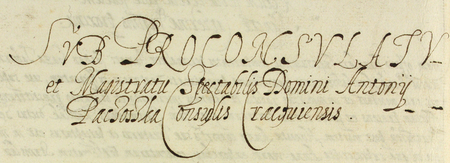 SVB PROCONSVLATV
et Magistratu Spectabilis Domini Antonij
Pachoska Consulis Cracquiensis.